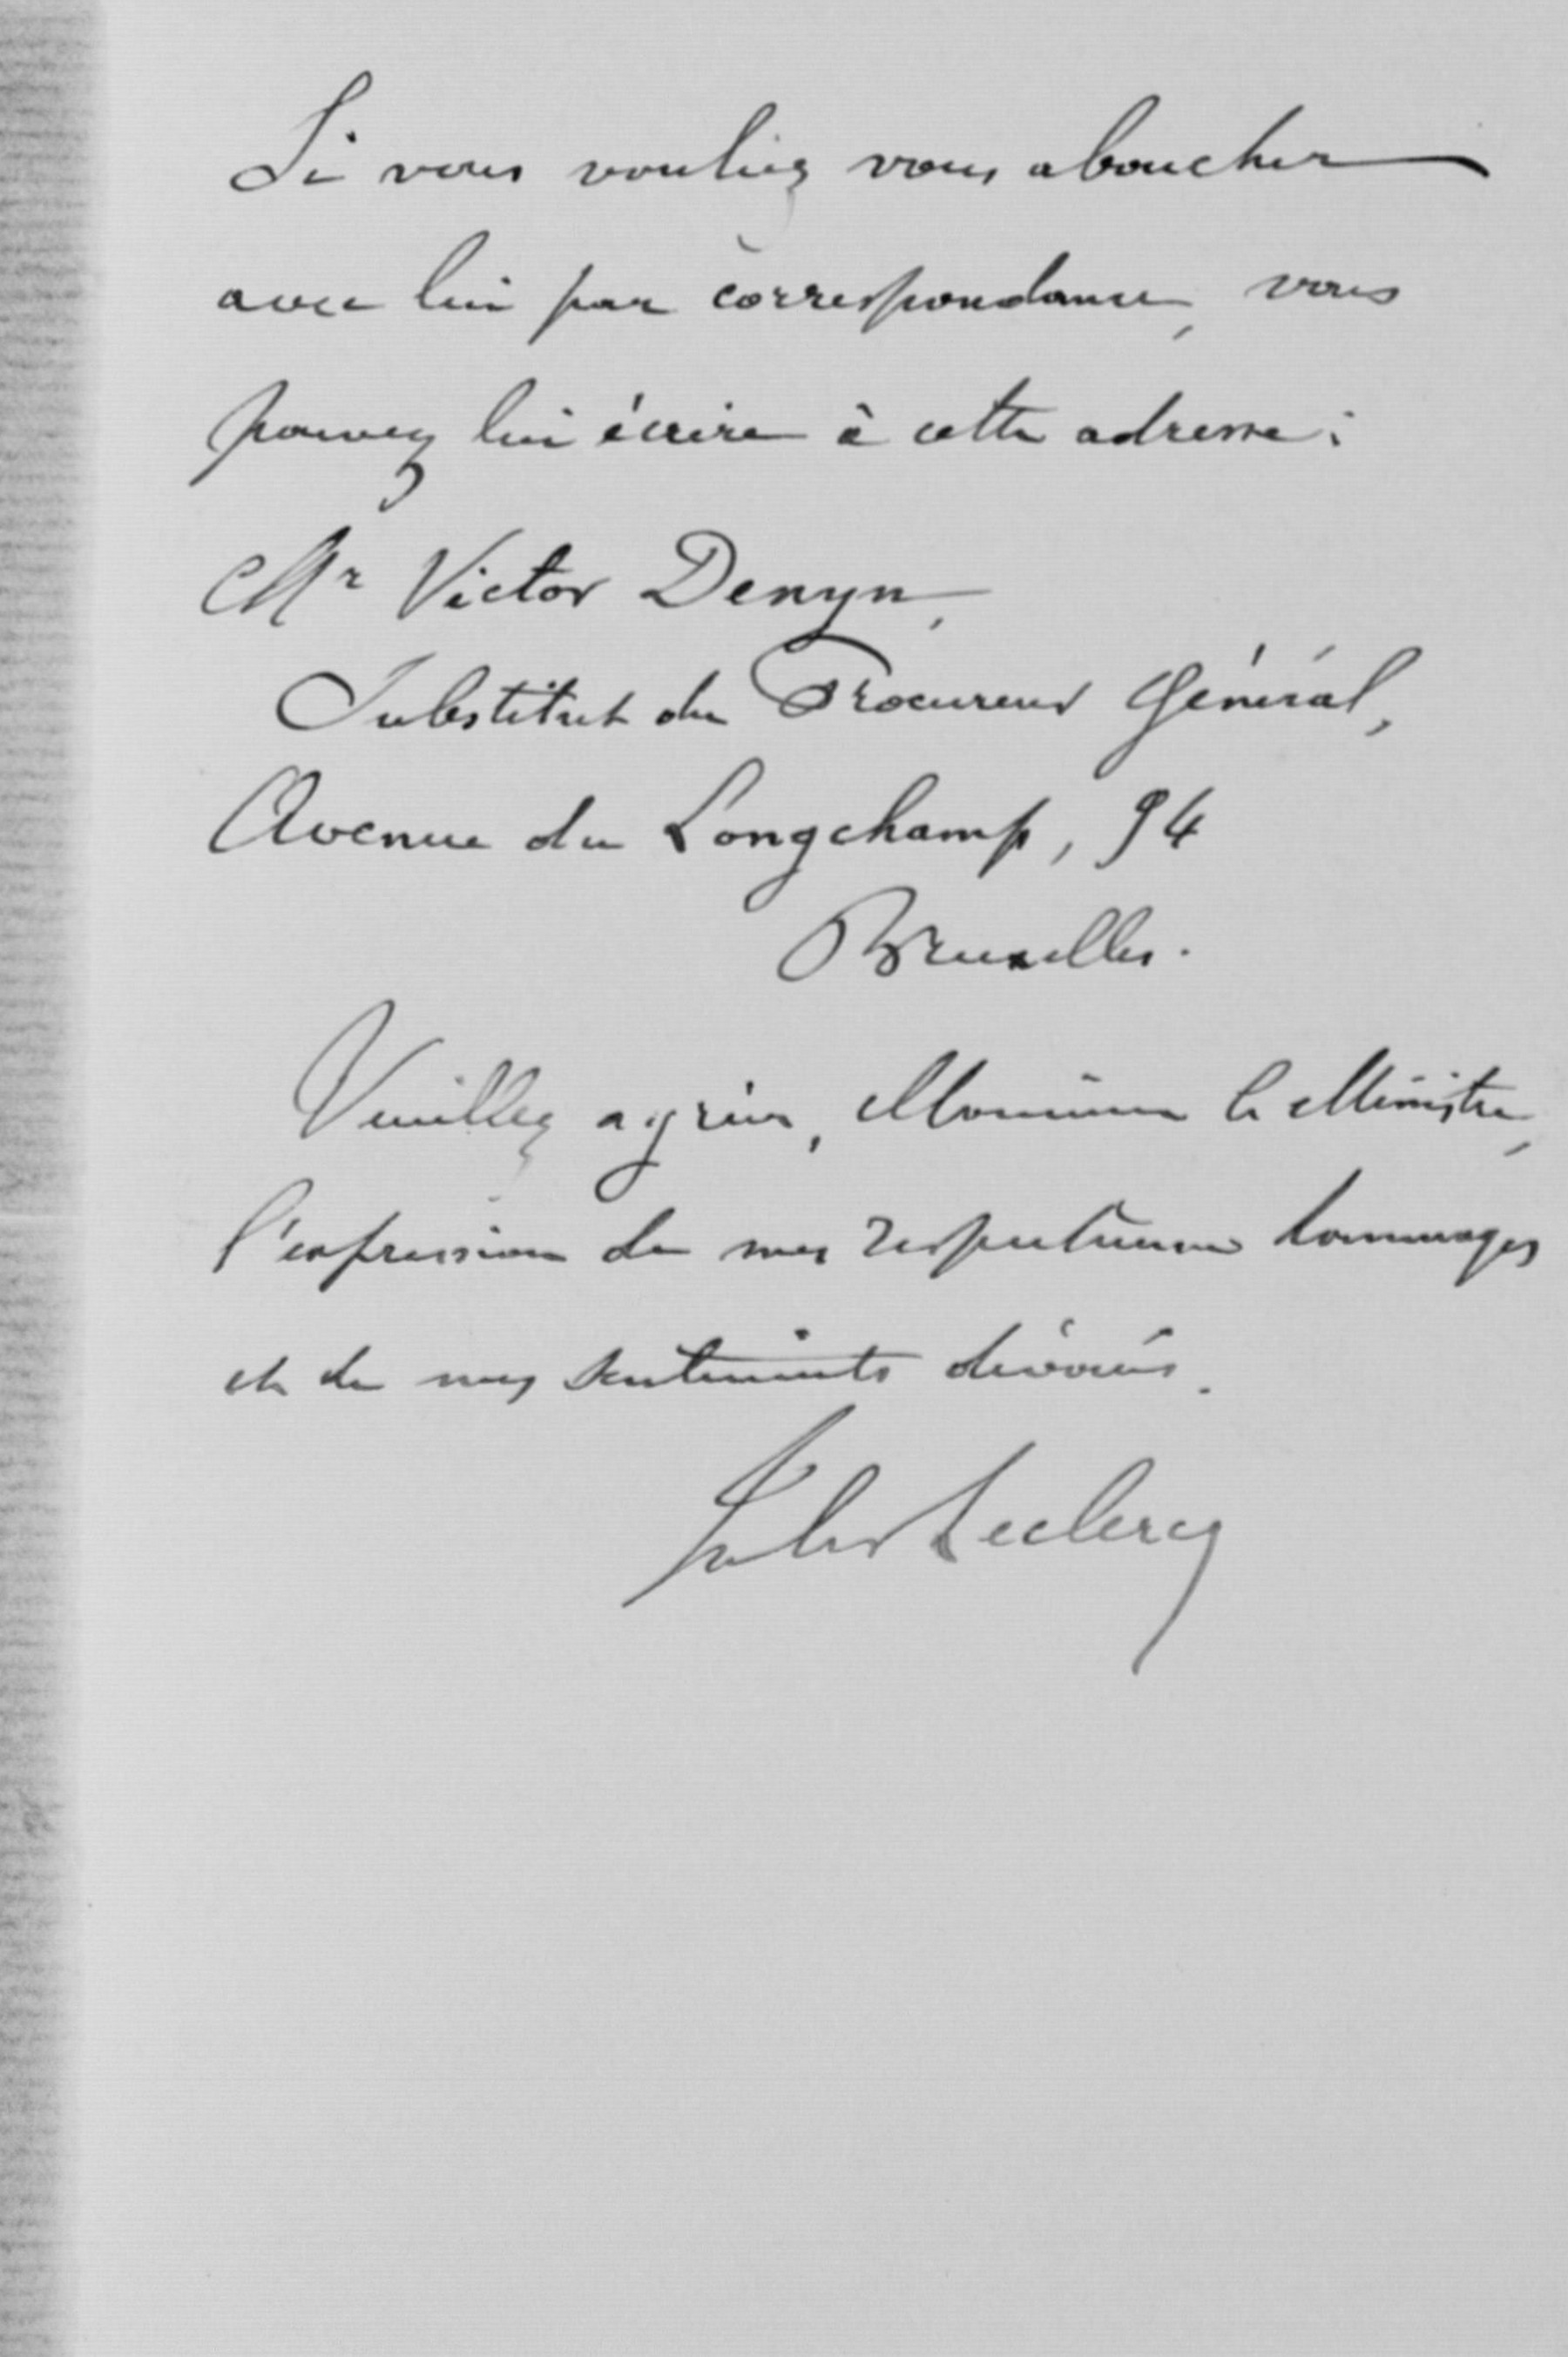 Si vous vouliez vous aboucher
avec lui par correspondance, vous
pouvez lui écrire à cette adresse :
Mr Victor Denyn,
Substitut du Procureur Général,
Avenue du Longchamp, 94
Bruxelles.
Veuillez agréer, Monsieur le Ministre,
l'expression de mes respectueux hommages
et de mes sentiments dévoués.
Jules Leclercq